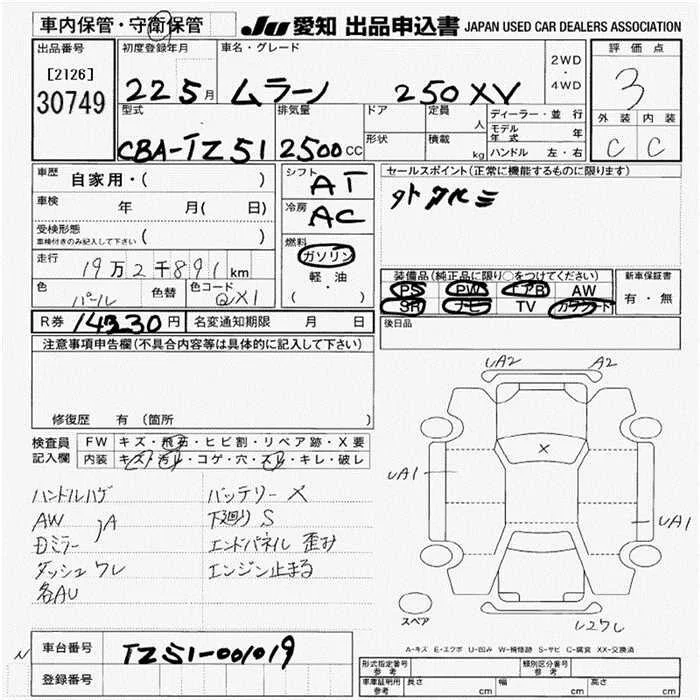 車内保管・守衛保管
JU 愛知 出品申込書 JAPAN USED CAR DEALERS ASSOCIATION
出品番号
[2126]
30749
初度登録年月
22 5月
車名・グレード
ムラーノ 250XV
2WD
・
4WD
評価点
3
外装 内装
C C
型式
CBA-TZ51
排気量
2500CC
ドア
形状
定員
人
積載
kg
ディーラー・並行
モデル年式 年
ハンドル 左・右
車歴 自家用・( )
車検 年 月( 日)
受検形態
車検付きのみ記入して下さい ( )
走行
19万2千891km
色
パール
色替
色コード
QX1
シフト
AT
冷房
AC
燃料
ガソリン
軽・油
( )
セールスポイント(正常に機能するものに限ります)
装備品(純正品に限り○をつけてください)
PS PW エアB AW
SR ナビ TV カワシート
新車保証書
有・無
後日品
R券 14330円
名変通知期限 月 日
注意事項申告欄(不具合内容等は具体的に記入して下さい)
修復歴 有(箇所 )
検査員
記入欄
FW キズ・飛石・ヒビ割・リペア跡・X要
内装 キズ・汚れ・コゲ・穴・スレ・キレ・破レ
ハンドルハゲ
AW
Dミラー
)A
ダッシュワレ
各AU
バッテリーX
下廻りS
エンドパネル歪み
エンジン止まる
UA2
A2
X
UA1
UA1
スペア
A-キズ E-エクボ U-凹み W-補修跡 S-サビ C-腐食 XX-交換済
車台番号 TZ51-001019
登録番号
形式指定番号
参考
類別区分番号
参考
車庫証明用
参考
長さ cm
幅 cm
高さ cm